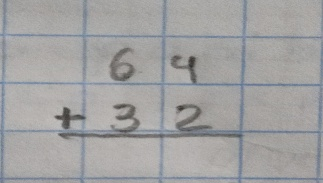 64
+ 32